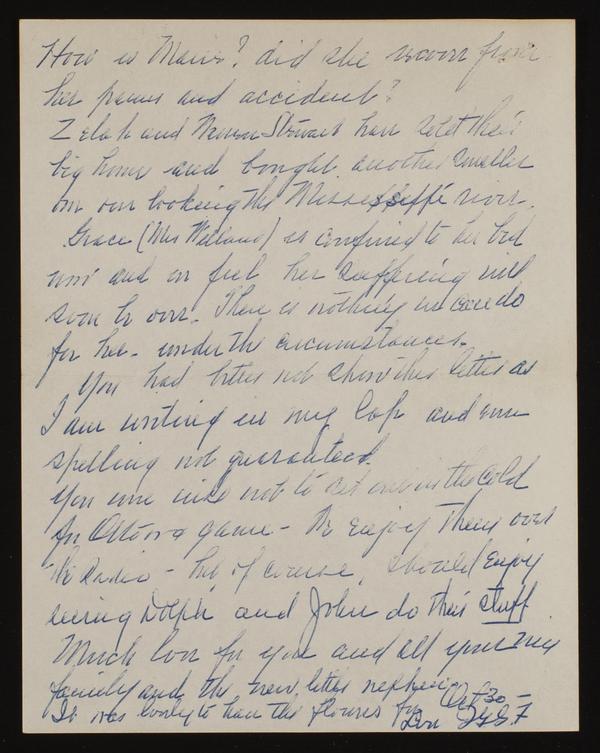 How is Marie? did she recover from
her 
and accident?
Zelah and Stewart have sold their
big home and bought another smaller
one over looking the Missessiffi river.
Grace (Mrs Williams) is confined to her bed
now and we feel her suffering will
soon be over. There is nothing we can do
for her - under the circumstances.
You had better not show this letter as
I am writing in my lap and even
spelling not guaranteed.
You were wise not to sit out in the cold
for Ottawa game - We enjoy them over
the Radio - but, of course, should enjoy
seeing Dolph and John do their stuff
Much love for you and all your
family and the new little nephew. Oct 30 -
It was lovely to have the flowers